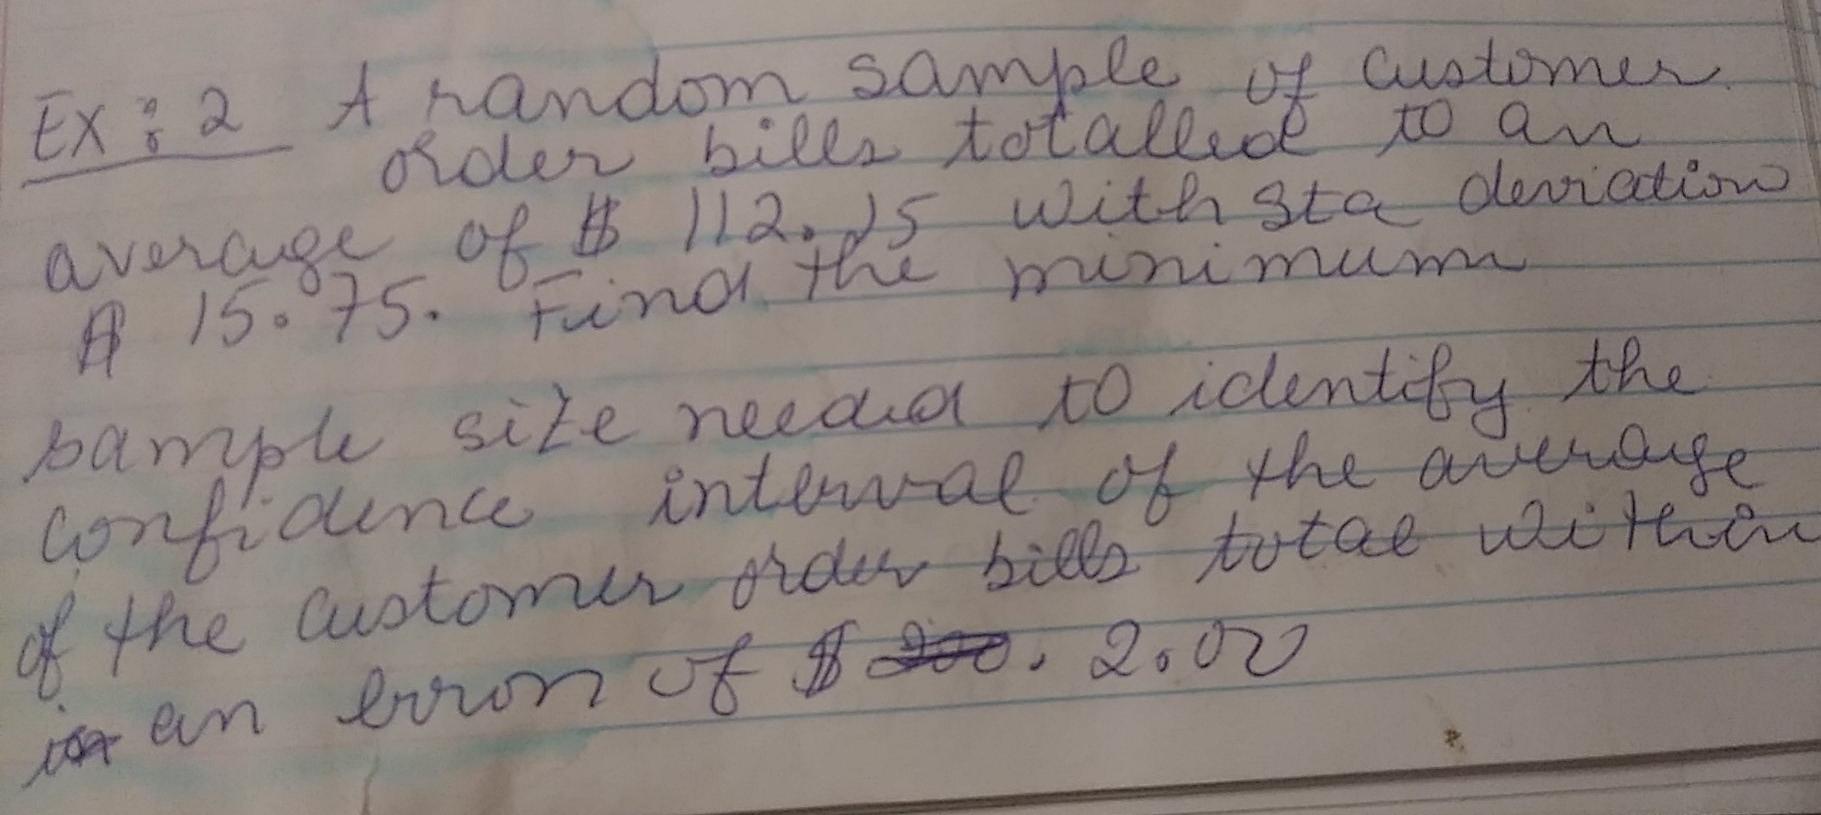 Ex: 2 A random sample of customer
order bills totalled to an
average of $ 112.15 with sta deviation
$ 15.75. Find the minimum
sample size needed to identify the
confidence interval of the average
of the customer order bills total within
an error of $ 2.00